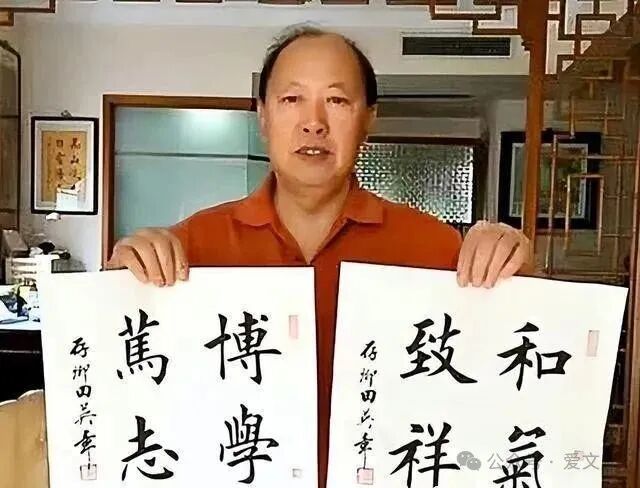 博學
篤志
存卿田英章
和氣
致祥
存卿田英章
公众号 · 爱文